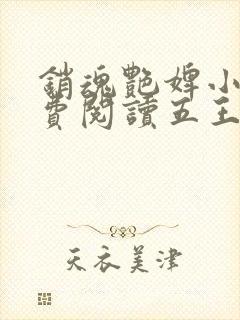 銷魂艷婢小
費閱讀五王
天衣美津